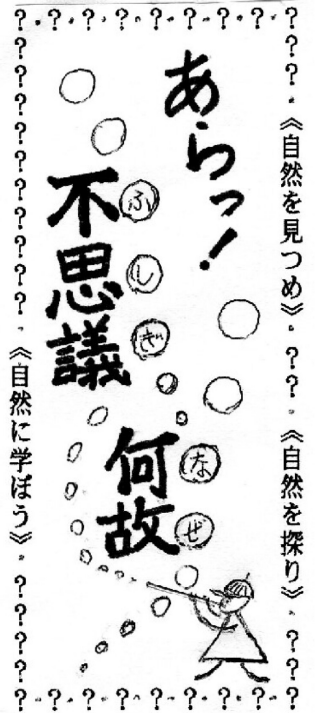 ?・?・?・?・?・?・?・?・?
??。《自然を見つめ》。??。《自然を探り》。??
あらっ!
不思議
ふしぎ
何故
なぜ
??????????。《自然に学ぼう》。????
?・?・?・?・?・?・?・?・?